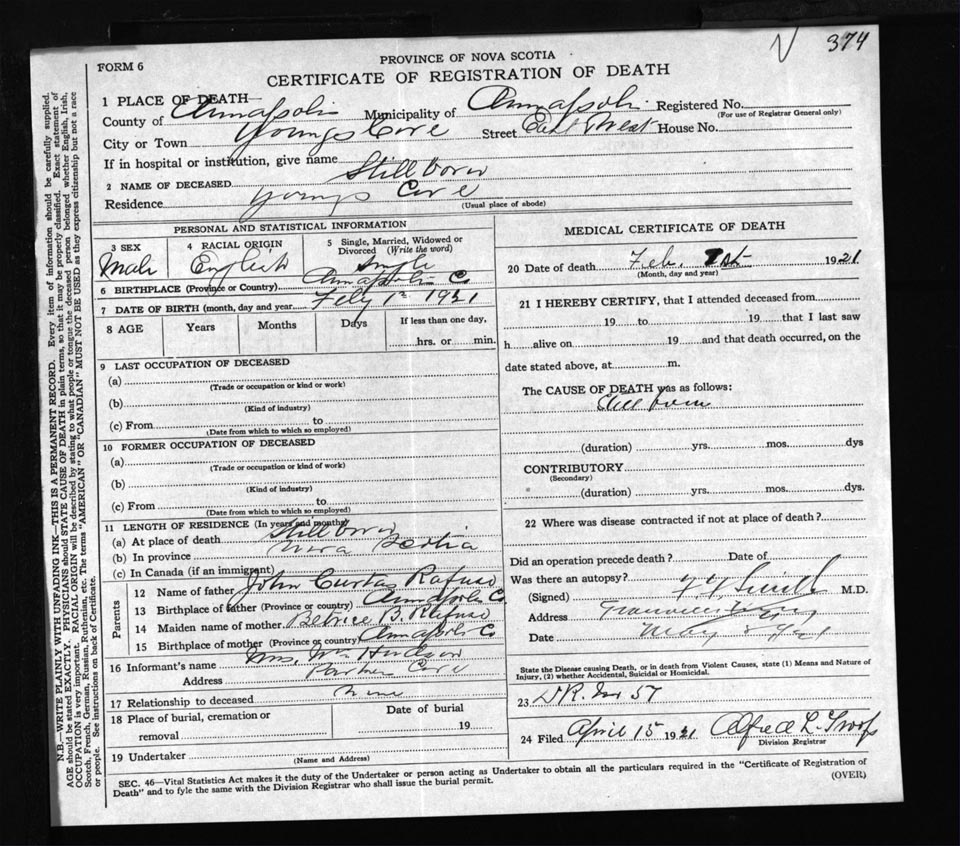 374
FORM 6
PROVINCE OF NOVA SCOTIA
CERTIFICATE OF REGISTRATION OF DEATH
1 PLACE OF DEATH—
County of Annapolis Municipality of Annapolis Registered No.
(For use of Registrar General only)
City or Town Youngs Cove Street East West House No.
If in hospital or institution, give name
2 NAME OF DECEASED Still born
Residence Youngs Cove
(Usual place of abode)
PERSONAL AND STATISTICAL INFORMATION
3 SEX Male
4 RACIAL ORIGIN English
5 Single, Married, Widowed or Divorced (Write the word) Single
6 BIRTHPLACE (Province or Country) Annapolis Co
7 DATE OF BIRTH (month, day and year) Feby 1st 1921
8 AGE Years Months Days If less than one day, hrs. or min.
9 LAST OCCUPATION OF DECEASED
(a)
(Trade or occupation or kind or work)
(b)
(Kind of industry)
(c) From to
(Date from which to which so employed)
10 FORMER OCCUPATION OF DECEASED
(a)
(Trade or occupation or kind of work)
(b)
(Kind of industry)
(c) From to
(Date from which to which so employed)
11 LENGTH OF RESIDENCE (In years and months)
(a) At place of death Still born
(b) In province Nova Scotia
(c) In Canada (if an immigrant)
Parents
12 Name of father John Curtas Rafuse
13 Birthplace of father (Province or country) Annapolis Co
14 Maiden name of mother B. Rafuse
15 Birthplace of mother (Province or country) Annapolis Co
16 Informant's name Mrs. Wm Hudson
Address Parkers Cove
17 Relationship to deceased None
18 Place of burial, cremation or removal
Date of burial
19
19 Undertaker
(Name and Address)
MEDICAL CERTIFICATE OF DEATH
20 Date of death Feb. 1st 1921
(Month, day and year)
21 I HEREBY CERTIFY, that I attended deceased from
19 to 19 that I last saw
h alive on 19 and that death occurred, on the
date stated above, at m.
The CAUSE OF DEATH was as follows:
Still born
(duration) yrs. mos. dys
CONTRIBUTORY
(Secondary)
(duration) yrs. mos. dys.
22 Where was disease contracted if not at place of death?
Did an operation precede death? Date of
Was there an autopsy?
(Signed) Smith M.D.
Address Granville
Date May
State the Disease causing Death, or in death from Violent Causes, state (1) Means and Nature of
Injury, (2) whether Accidental, Suicidal or Homicidal.
23 D.R. No 57
24 Filed April 15 1921 Alfred L. Troop
Division Registrar
SEC. 46—Vital Statistics Act makes it the duty of the Undertaker or person acting as Undertaker to obtain all the particulars required in the "Certificate of Registration of
Death" and to fyle the same with the Division Registrar who shall issue the burial permit.
(OVER)
N.B.—WRITE PLAINLY WITH UNFADING INK—THIS IS A PERMANENT RECORD. Every item of information should be carefully supplied.
AGE should be stated EXACTLY. PHYSICIANS should STATE CAUSE OF DEATH in plain terms, so that it may be properly classified. Exact statement of
OCCUPATION is very important. RACIAL ORIGIN will be described by stating to what people or tongue the deceased person belonged whether English, Irish,
Scotch, French, German, Russian, Ruthenian, etc. The terms "AMERICAN" OR "CANADIAN" MUST NOT BE USED as they express citizenship but not a race
or people. See instructions on back of Certificate.